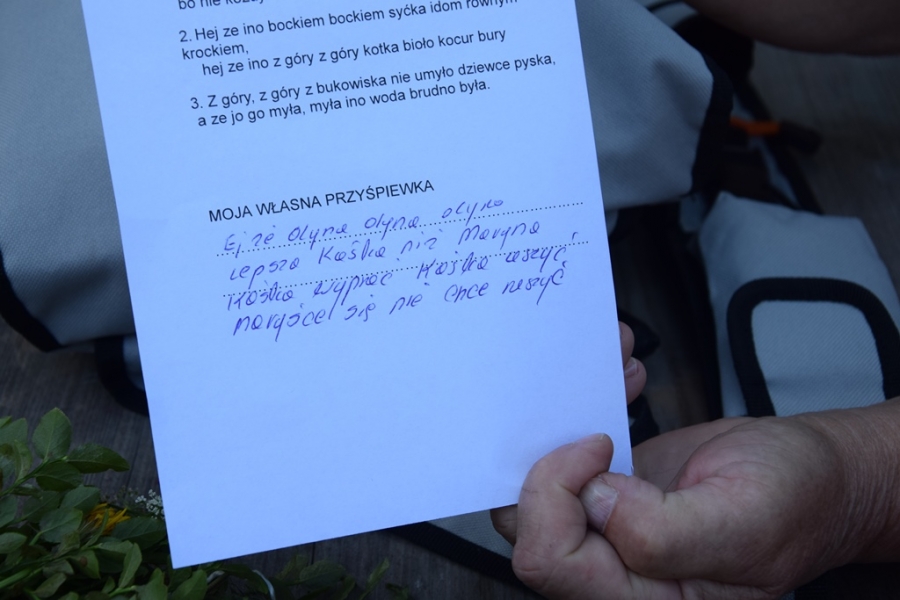 bo nie każdy
2. Hej ze ino bockiem bockiem syćka idom równym
krockiem,
hej ze ino z góry z góry kotka bioło kocur bury
3. Z góry, z góry z bukowiska nie umyło dziewce pyska,
a ze jo go myła, myła ino woda brudno była.
MOJA WŁASNA PRZYŚPIEWKA
Ej że olyna olyna olyna
lepsza Kaśka niż Maryna
Kaśka wyprać Kaśka uszyć,
maryśce się nie chce ruszyć